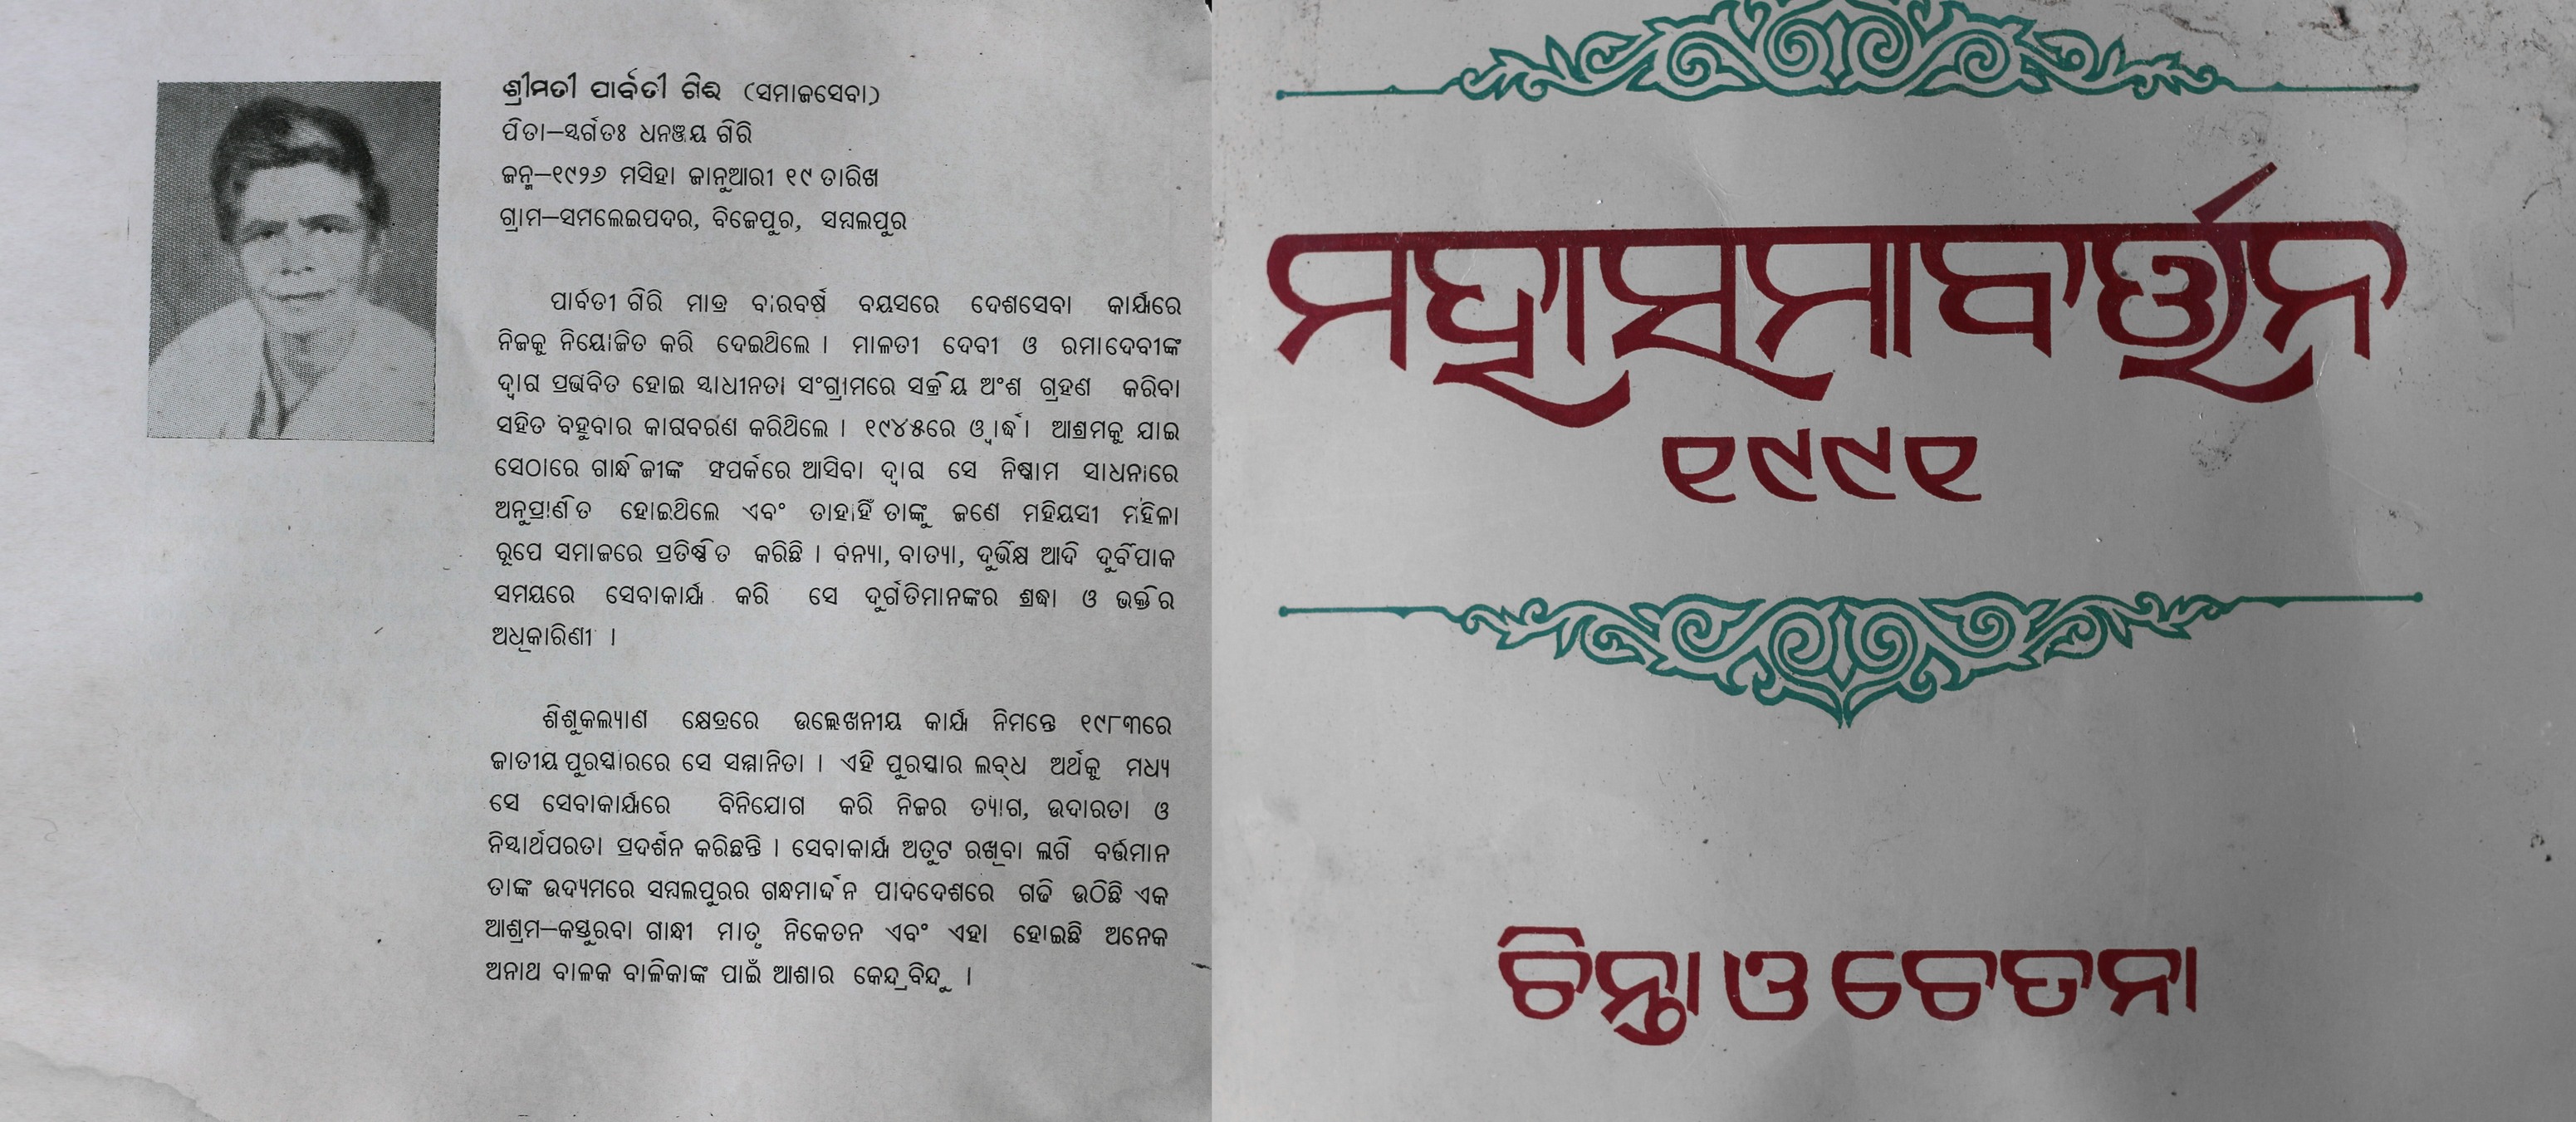 ଶ୍ରୀମତୀ ପାର୍ବତୀ ଗିରି (ସମାଜସେବା)
ପିତା—ସ୍ବର୍ଗତଃ ଧନଞ୍ଜୟ ଗିରି
ଜନ୍ମ—୧୯୨୬ ମସିହା ଜାନୁଆରୀ ୧୯ ତାରିଖ
ଗ୍ରାମ—ସମଲେଇପଦର, ବିଜେପୁର, ସମ୍ବଲପୁର
ପାର୍ବତୀ ଗିରି ମାତ୍ର ବାରବର୍ଷ ବୟସରେ ଦେଶସେବା କାର୍ଯ୍ୟରେ
ନିଜକୁ ନିୟୋଜିତ କରି ଦେଇଥିଲେ । ମାଳତୀ ଦେବୀ ଓ ରମାଦେବୀଙ୍କ
ଦ୍ୱାରା ପ୍ରଭାବିତ ହୋଇ ସ୍ୱାଧୀନତା ସଂଗ୍ରାମରେ ସକ୍ରିୟ ଅଂଶ ଗ୍ରହଣ କରିବା
ସହିତ ବହୁବାର କାରାବରଣ କରିଥିଲେ । ୧୯୪୫ରେ ଓ୍ଵାର୍ଦ୍ଧା ଆଶ୍ରମକୁ ଯାଇ
ସେଠାରେ ଗାନ୍ଧିଜୀଙ୍କ ସଂପର୍କରେ ଆସିବା ଦ୍ୱାରା ସେ ନିଷ୍କାମ ସାଧନାରେ
ଅନୁପ୍ରାଣିତ ହୋଇଥିଲେ ଏବଂ ତାହାହିଁ ତାଙ୍କୁ ଜଣେ ମହିୟସୀ ମହିଳା
ରୂପେ ସମାଜରେ ପ୍ରତିଷ୍ଠିତ କରିଛି । ବନ୍ୟା, ବାତ୍ୟା, ଦୁର୍ଭିକ୍ଷ ଆଦି ଦୁର୍ବିପାକ
ସମୟରେ ସେବାକାର୍ଯ୍ୟ କରି ସେ ଦୁର୍ଗତିମାନଙ୍କର ଶ୍ରଦ୍ଧା ଓ ଭକ୍ତିର
ଅଧିକାରିଣୀ ।
ଶିଶୁକଲ୍ୟାଣ କ୍ଷେତ୍ରରେ ଉଲ୍ଲେଖନୀୟ କାର୍ଯ୍ୟ ନିମନ୍ତେ ୧୯୮୩ରେ
ଜାତୀୟ ପୁରସ୍କାରରେ ସେ ସମ୍ମାନିତା । ଏହି ପୁରସ୍କାର ଲବ୍ଧ ଅର୍ଥକୁ ମଧ୍ୟ
ସେ ସେବାକାର୍ଯ୍ୟରେ ବିନିଯୋଗ କରି ନିଜର ତ୍ୟାଗ, ଉଦାରତା ଓ
ନିସ୍ୱାର୍ଥପରତା ପ୍ରଦର୍ଶନ କରିଛନ୍ତି । ସେବାକାର୍ଯ୍ୟ ଅତୁଟ ରଖିବା ଲାଗି ବର୍ତ୍ତମାନ
ତାଙ୍କ ଉଦ୍ୟମରେ ସମ୍ବଲପୁରର ଗନ୍ଧମାର୍ଦ୍ଦନ ପାଦଦେଶରେ ଗଢି ଉଠିଛି ଏକ
ଆଶ୍ରମ—କସ୍ତୁରବା ଗାନ୍ଧୀ ମାତୃ ନିକେତନ ଏବଂ ଏହା ହୋଇଛି ଅନେକ
ଅନାଥ ବାଳକ ବାଳିକାଙ୍କ ପାଇଁ ଆଶାର କେନ୍ଦ୍ରବିନ୍ଦୁ ।
ମହାସମାବର୍ତ୍ତନ
୧୯୯୧
ଚିନ୍ତା ଓ ଚେତନା